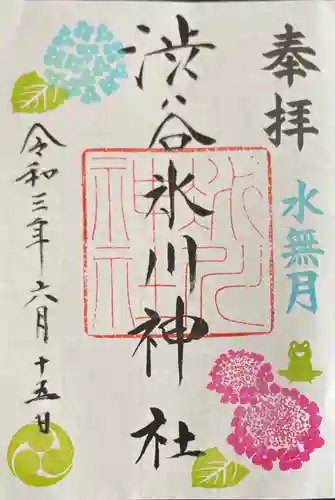 奉拝
水無月
渋谷氷川神社
氷川神社
令和三年六月十五日